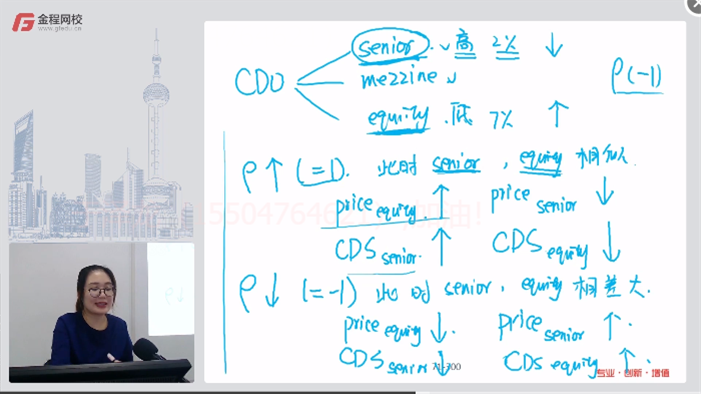 金程网校
www.gfedu.cn
senior. 高 2% ↓
CDO mezzine ρ(-1)
equity. 低 7% ↑
ρ↑ (=1). 此时 senior, equity 相似.
price equity. ↑ price senior ↓
CDS senior. ↑ CDS equity ↓
ρ↓ (=-1) 此时 senior, equity 相差大.
price equity ↓. price senior ↑.
CDS senior ↓ CDS equity ↑.
71-300
专业·创新·增值